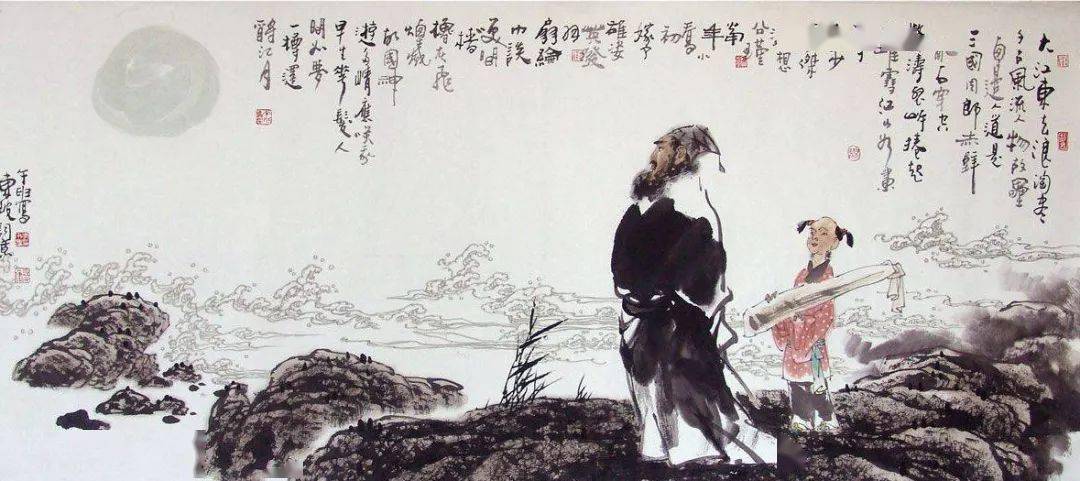 大江東去浪淘盡
千古風流人物故壘
西邊人道是
三國周郎赤壁
石穿空
濤裂岸捲起
堆雪江山如畫
少
傑
想
公瑾
當
年
小
喬
初
嫁了
雄姿
英發
羽
扇綸
巾談
笑間
檣
櫓灰飛
煙滅
故國神
遊多情應笑我
早生華髮人
間如夢
一樽還
酹江月
寫
東坡詞意